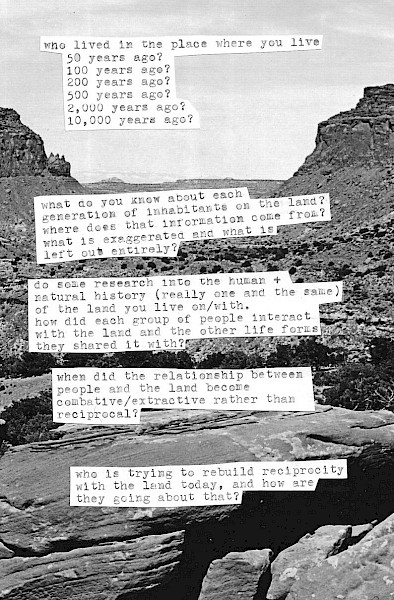 who lived in the place where you live
50 years ago?
100 years ago?
200 years ago?
500 years ago?
2,000 years ago?
10,000 years ago?
what do you know about each
generation of inhabitants on the land?
where does that information come from?
what is exaggerated and what is
left out entirely?
do some research into the human +
natural history (really one and the same)
of the land you live on/with.
how did each group of people interact
with the land and the other life forms
they shared it with?
when did the relationship between
people and the land become
combative/extractive rather than
reciprocal?
who is trying to rebuild reciprocity
with the land today, and how are
they going about that?